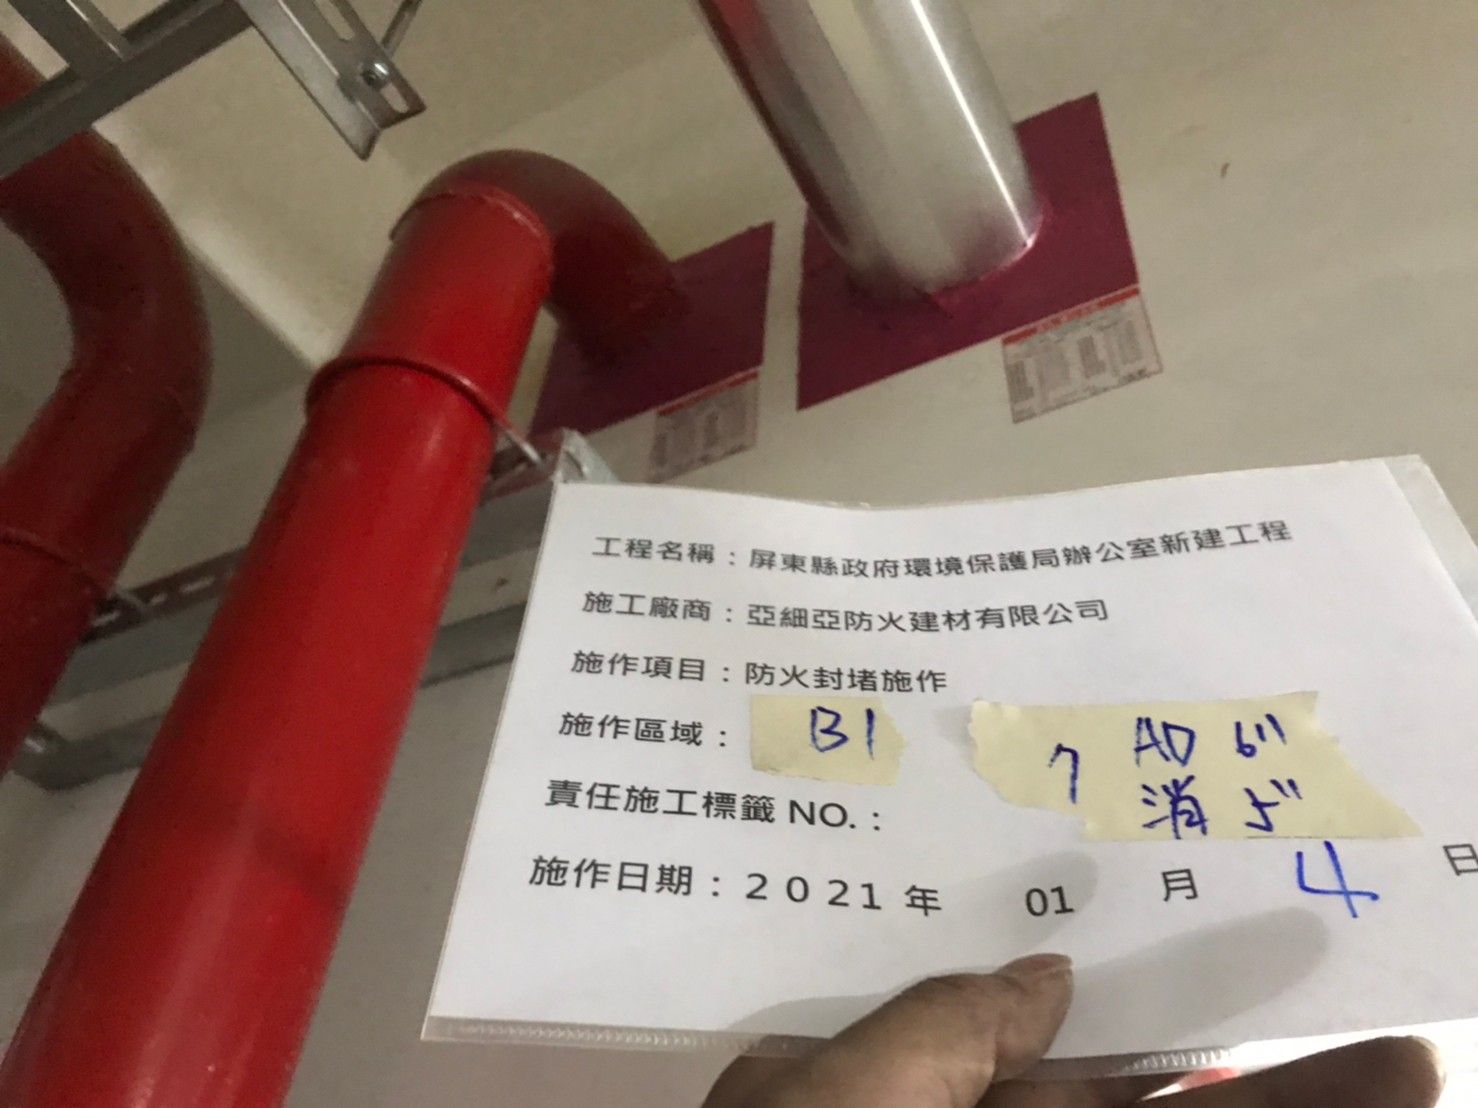 工程名稱：屏東縣政府環境保護局辦公室新建工程
施工廠商：亞細亞防火建材有限公司
施作項目：防火封堵施作
施作區域：B1
7 AD 6"
消 5"
責任施工標籤 NO.：
施作日期：2021 年 01 月 4 日